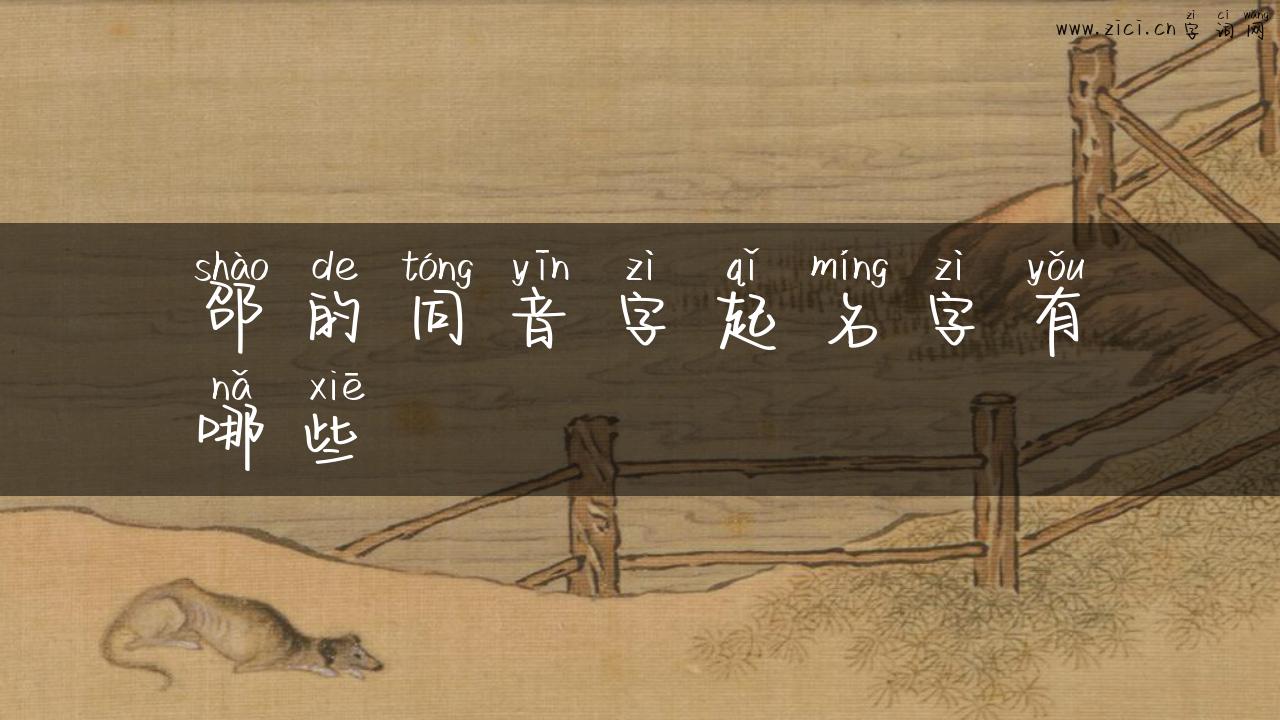 zì cí wǎng
www.zici.cn 字词网
shào de tóng yīn zì qǐ míng zì yǒu
邵的同音字起名字有
nǎ xiē
哪些